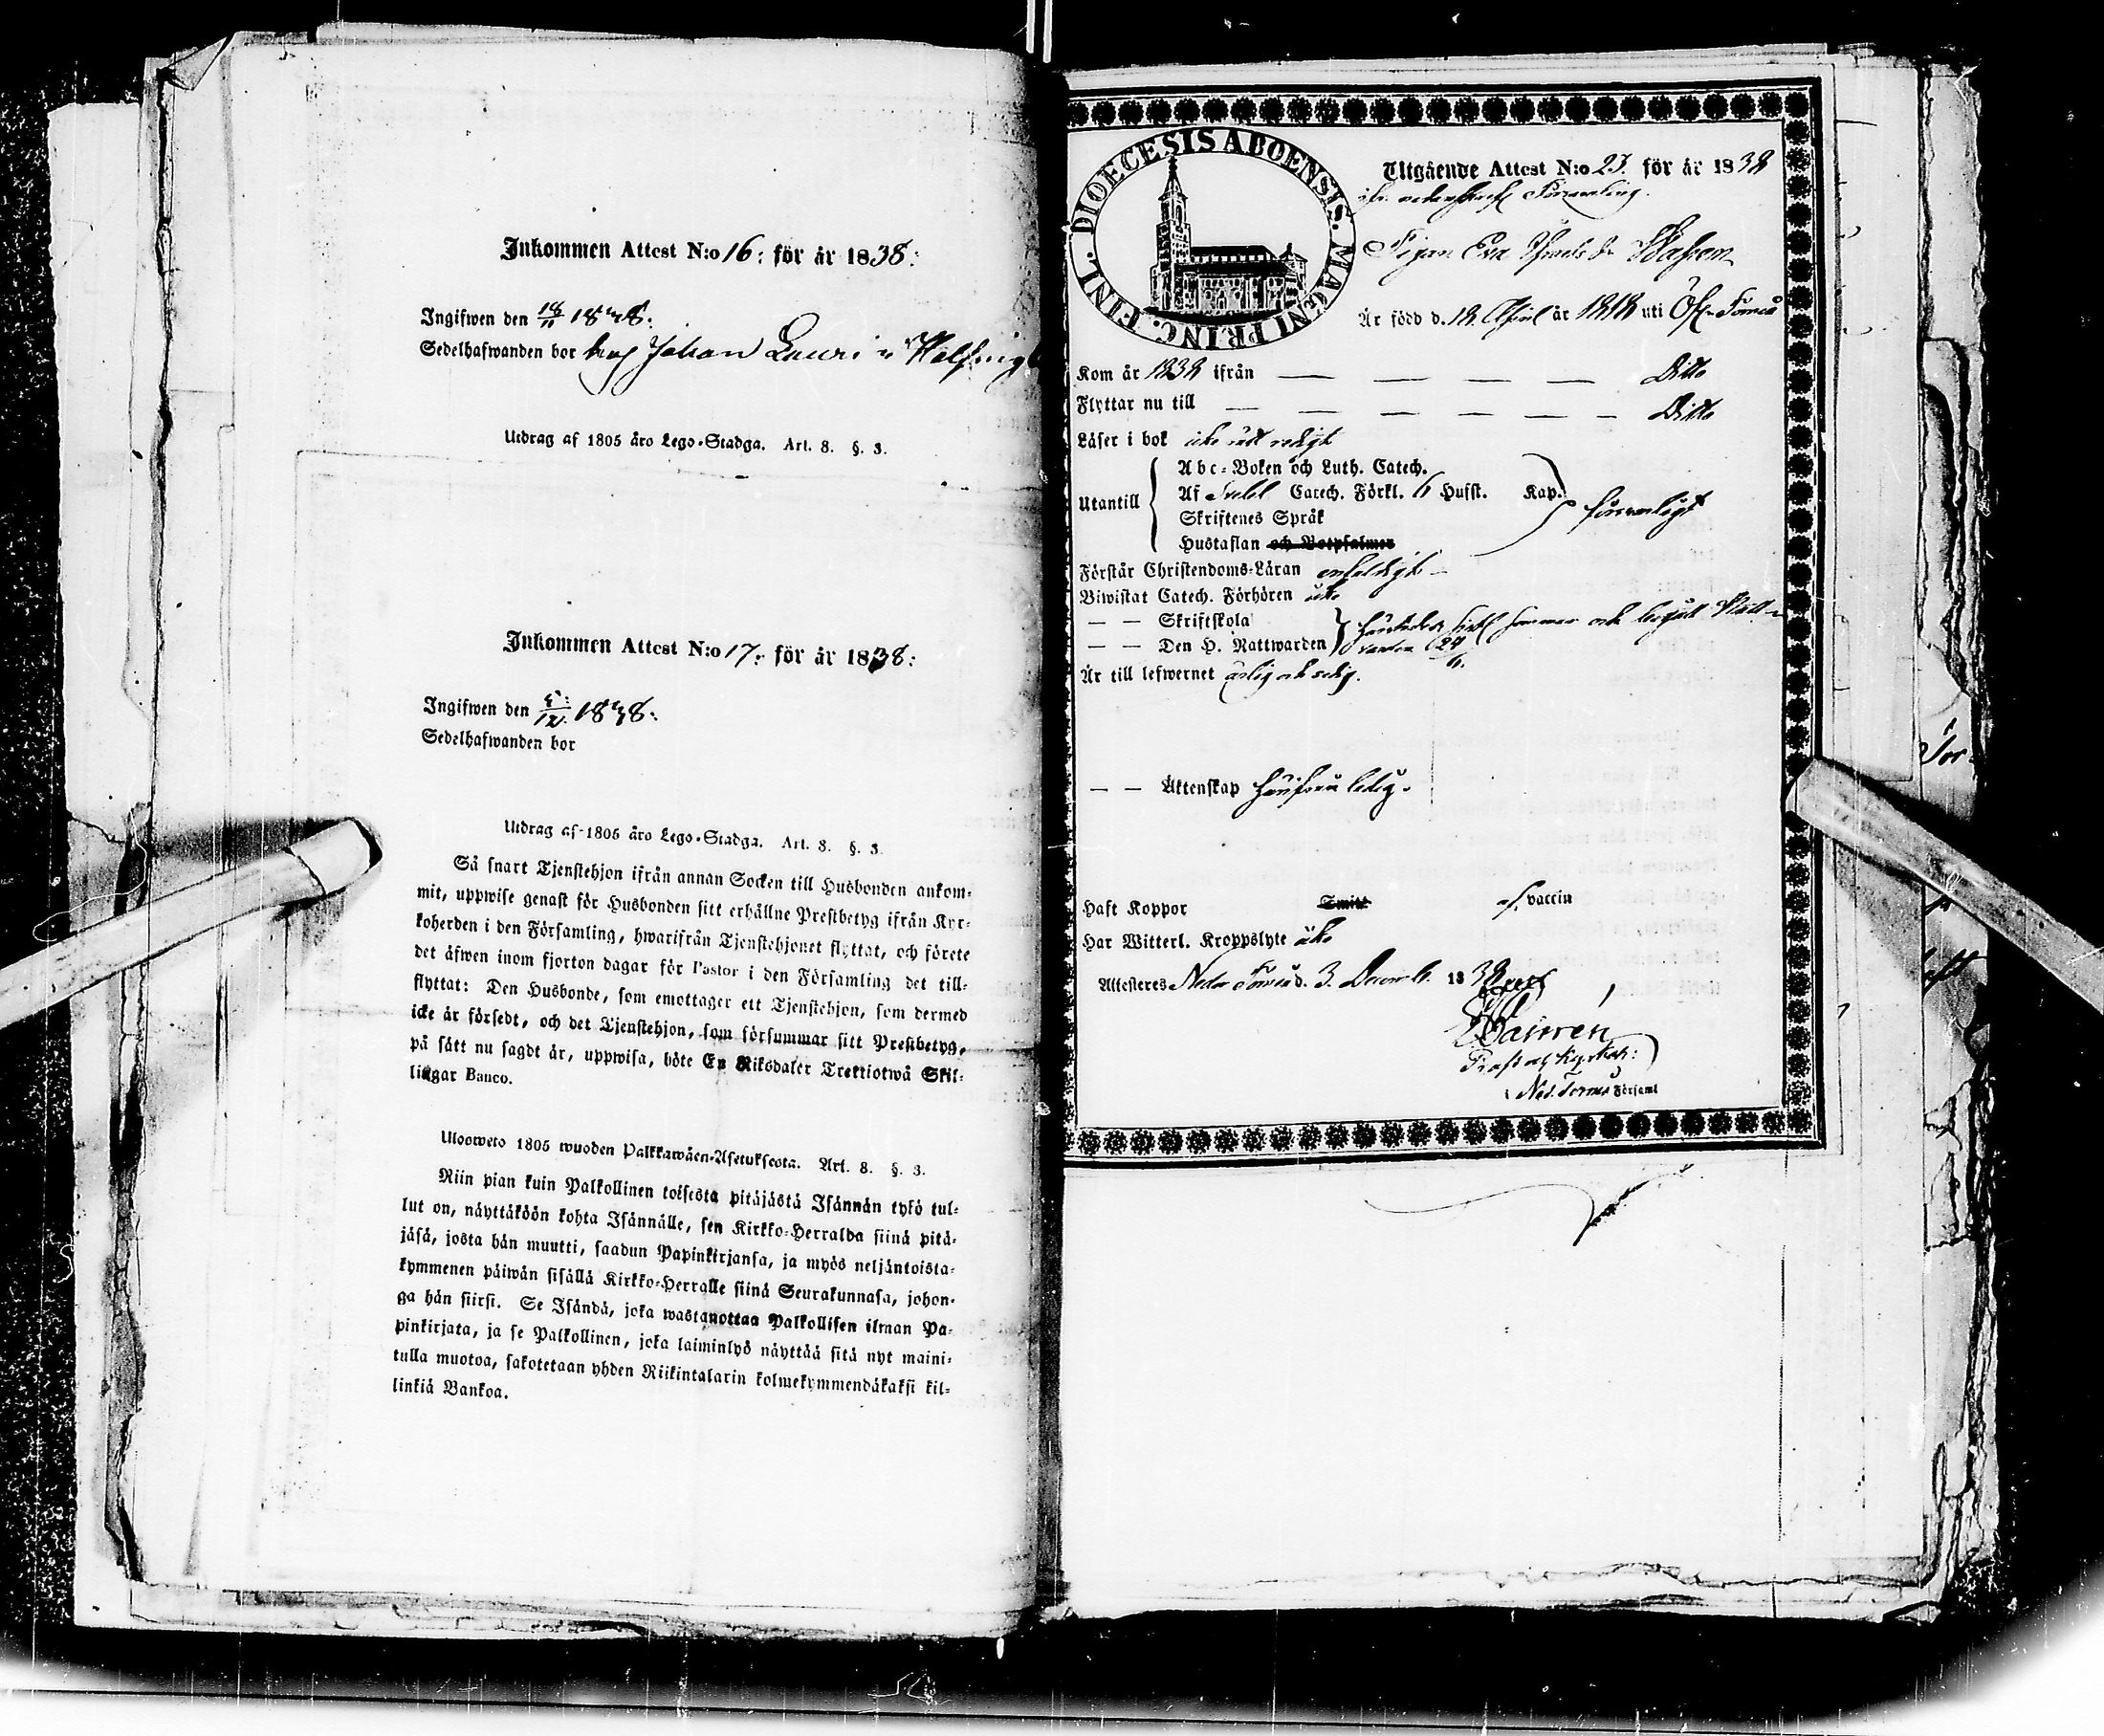 Inkommen Attest N:o 16: för år 1838:
Ingifwen den 18/11 1838:
Sedelhafwanden bor hos Johan Lauri i
Utdrag af 1805 åro Lego-Stadga. Art. 8. §. 3.
Inkommen Attest N:o 17: för år 1838:
Ingifwen den 5/12 1838:
Sedelhafwanden bor
Utdrag af 1805 åro Lego-Stadga. Art. 8. §. 3.
Så snart Tjenstehjon ifrån annan Socken till Husbonden ankom-
mit, uppwise genast för Husbonden sitt erhållne Prestbetyg ifrån Kyr-
koherden i den Församling, hwarifrån Tjenstehjonet flyttat, och förete
det äfwen inom fjorton dagar för Pastor i den Församling det till-
flyttat: Den Husbonde, som emottager ett Tjenstehjon, som dermed
icke är försedt, och det Tjenstehjon, som försummar sitt Prestbetyg,
på sätt nu sagdt är, uppwisa, böte En Riksdaler Trettiotwå Skil-
lingar Banco.
Ulosweto 1805 wuoden Palkkawäen-Asetuksesta. Art. 8. §. 3.
Niin pian kuin Palkollinen toisesta pitäjästä Isännän tykö tul-
lut on, näyttäköön kohta Isännälle, sen Kirkko-Herralda siinä pitä-
jäsä, josta hän muutti, saadun Papinkirjansa, ja myös neljäntoista-
kymmenen päiwän sisällä Kirkko-Herralle siinä Seurakunnasa, johon-
ga hän siirsi. Se Isändä, joka wastanottaa Palkollisen ilman Pa-
pinkirjata, ja se Palkollinen, joka laiminlyö näyttää sitä nyt maini-
tulla muotoa, sakotetaan yhden Riikintalarin kolmekymmendäkaksi kil-
linkiä Bankoa.
DIOECESIS ABOENSIS. MAGNI PRINC. FINL.
Utgående Attest N:o 23. för år 1838
Församling.
Pigan Eva
Är född d. 18. April år 1818 uti Öfr Torneå
Kom år 1838 ifrån — — — — Ditto
Flyttar nu till — — — — — — Ditto
Läser i bok icke rätt redigt
Utantill
Abc-Boken och Luth. Catech.
Af Catech. Förkl. 6 Hufst. Kap.
försvarligt
Skriftenes Språk
Hustaflan och Botpsalmer
Förstår Christendoms-Läran enfaldigt —
Biwistat Catech. Förhören icke
— — Skriftskola
— — Den H. Nattwarden
sommar och begått Natt-
varden 24/6.
Är till lefwernet ärlig och sedig.
— — Äktenskap härifrån ledig.
Haft Koppor Smitt af vaccin
Har Witterl. Kroppslyte icke
Attesteras Neder Torneå d. 3. Decemb. 1838
Prost och Kyrkoh:
i Ned. Torneå Församl